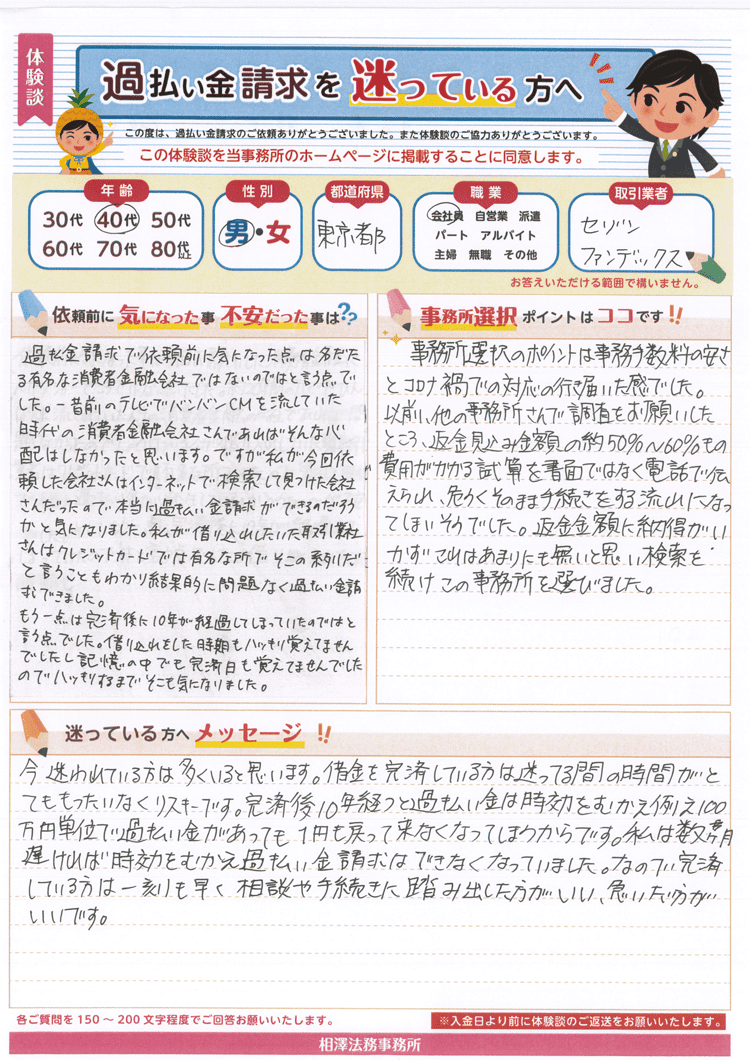 体験談
過払い金請求を迷っている方へ
この度は、過払い金請求のご依頼ありがとうございました。また体験談のご協力ありがとうございます。
この体験談を当事務所のホームページに掲載することに同意します。
年齢
30代 40代 50代
60代 70代 80代以上
性別
男・女
都道府県
東京都
職業
会社員 自営業 派遣
パート アルバイト
主婦 無職 その他
取引業者
セゾン
ファンデックス
お答えいただける範囲で構いません。
依頼前に気になった事 不安だった事は??
過払金請求で依頼前に気になった点は名だた
る有名な消費者金融会社ではないのではと言う点で
した。一昔前のテレビでバンバンCMを流していた
時代の消費者金融会社さんであればそんな心
配はしなかったと思います。ですが私が今回依
頼した会社さんはインターネットで検索して見つけた会社
さんだったので本当に過払い金請求ができるのだろう
かと気になりました。私が借り入れしていた取引業社
さんはクレジットカードでは有名な所でそこの系列だ
と言うこともわかり結果的に問題なく過払い金請
求できました。
もう一点は完済後に10年が経過してしまっていたのではと
言う点でした。借り入れをした時期もハッキリ覚えてません
でしたし記憶の中でも完済日も覚えてませんでした
のでハッキリするまでそこも気になりました。
事務所選択ポイントはココです!!
事務所選択のポイントは事務手数料の安さ
とコロナ禍での対応の行き届いた感でした。
以前、他の事務所さんで調査をお願いした
ところ、返金見込み金額の約50%〜60%もの
費用がかかる試算を書面ではなく電話で伝
えられ、危うくそのまま手続きをする流れになっ
てしまいそうでした。返金金額に納得がい
かずこれはあまりにも無いと思い検索を
続けこの事務所を選びました。
迷っている方へメッセージ!!
今迷われている方は多くいると思います。借金を完済している方は迷ってる間の時間がと
てももったいなくリスキーです。完済後10年経つと過払い金は時効をむかえ例え100
万円単位で過払い金があっても1円も戻って来なくなってしまうからです。私は数ヶ月
遅ければ時効をむかえ過払い金請求はできなくなっていました。なので完済
している方は一刻も早く相談や手続きに踏み出した方がいい、急いだ方が
いいです。
各ご質問を150〜200文字程度でご回答お願いいたします。
※入金日より前に体験談のご返送をお願いいたします。
相澤法務事務所